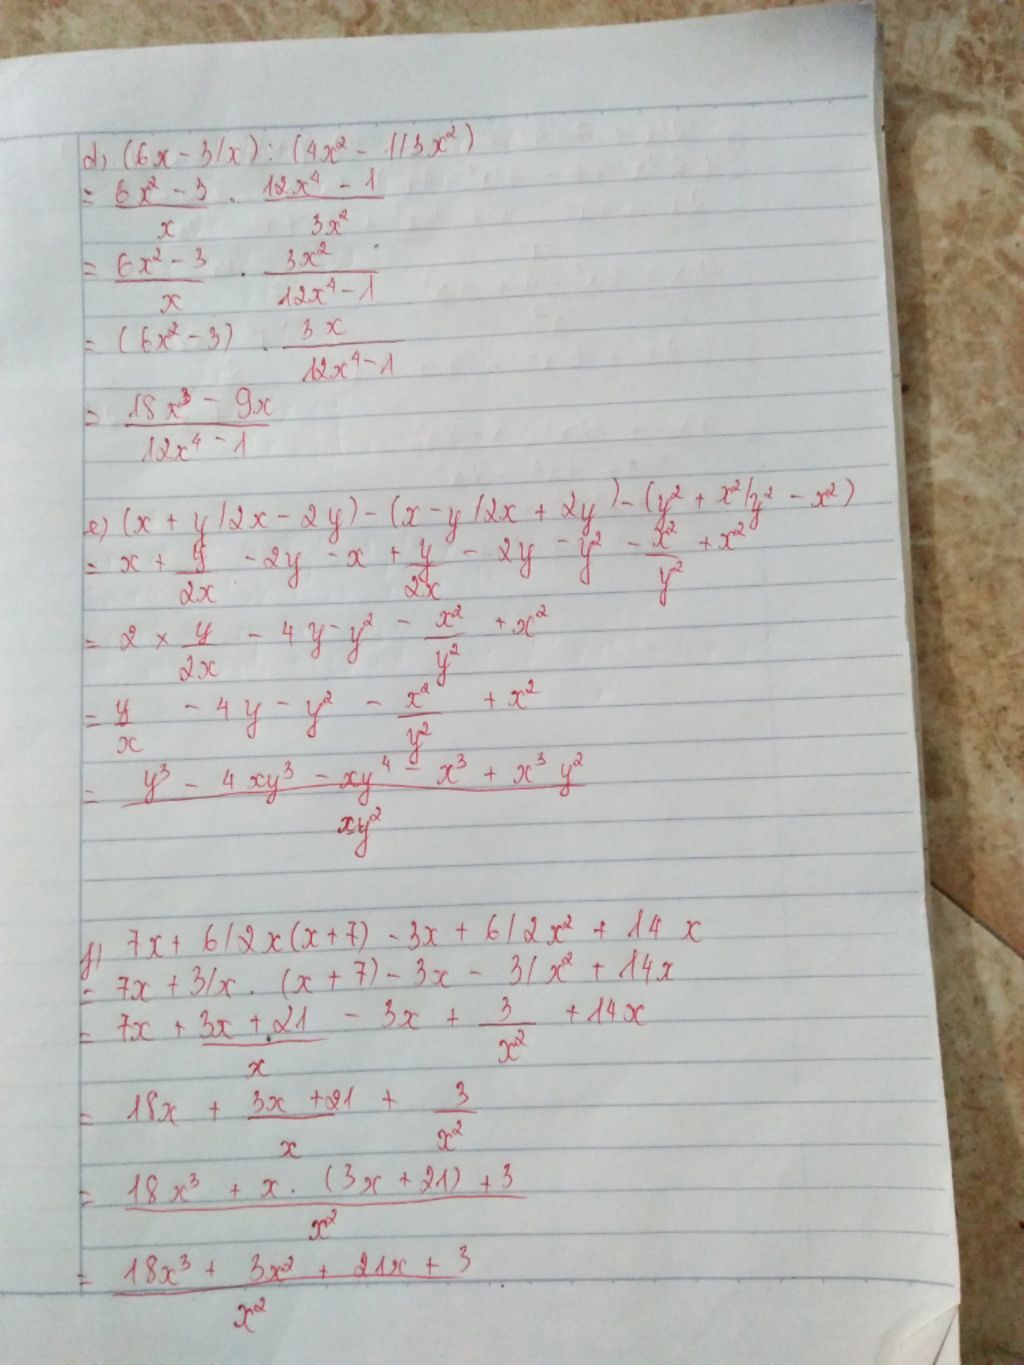 d, (6x - 3/x) : (4x² - 1/3x²)
= 6x² - 3 / x . 12x⁴ - 1 / 3x²
= 6x² - 3 / x . 3x² / 12x⁴ - 1
= (6x² - 3) . 3x / 12x⁴ - 1
= 18x³ - 9x / 12x⁴ - 1
e) (x + y/2x - 2y) - (x - y/2x + 2y) - (y² + x²/y² - x²)
= x + y / 2x - 2y - x + y / 2x - 2y - y² - x² / y² + x²
= 2 × y / 2x - 4y - y² - x² / y² + x²
= y / x - 4y - y² - x² / y² + x²
= y³ - 4xy³ - xy⁴ - x³ + x³y² / xy²
f) 7x + 6/2x(x+7) - 3x + 6/2x² + 14x
= 7x + 3/x . (x + 7) - 3x - 3/x² + 14x
= 7x + 3x + 21 / x - 3x + 3 / x² + 14x
= 18x + 3x + 21 / x + 3 / x²
= 18x³ + x . (3x + 21) + 3 / x²
= 18x³ + 3x² + 21x + 3 / x²